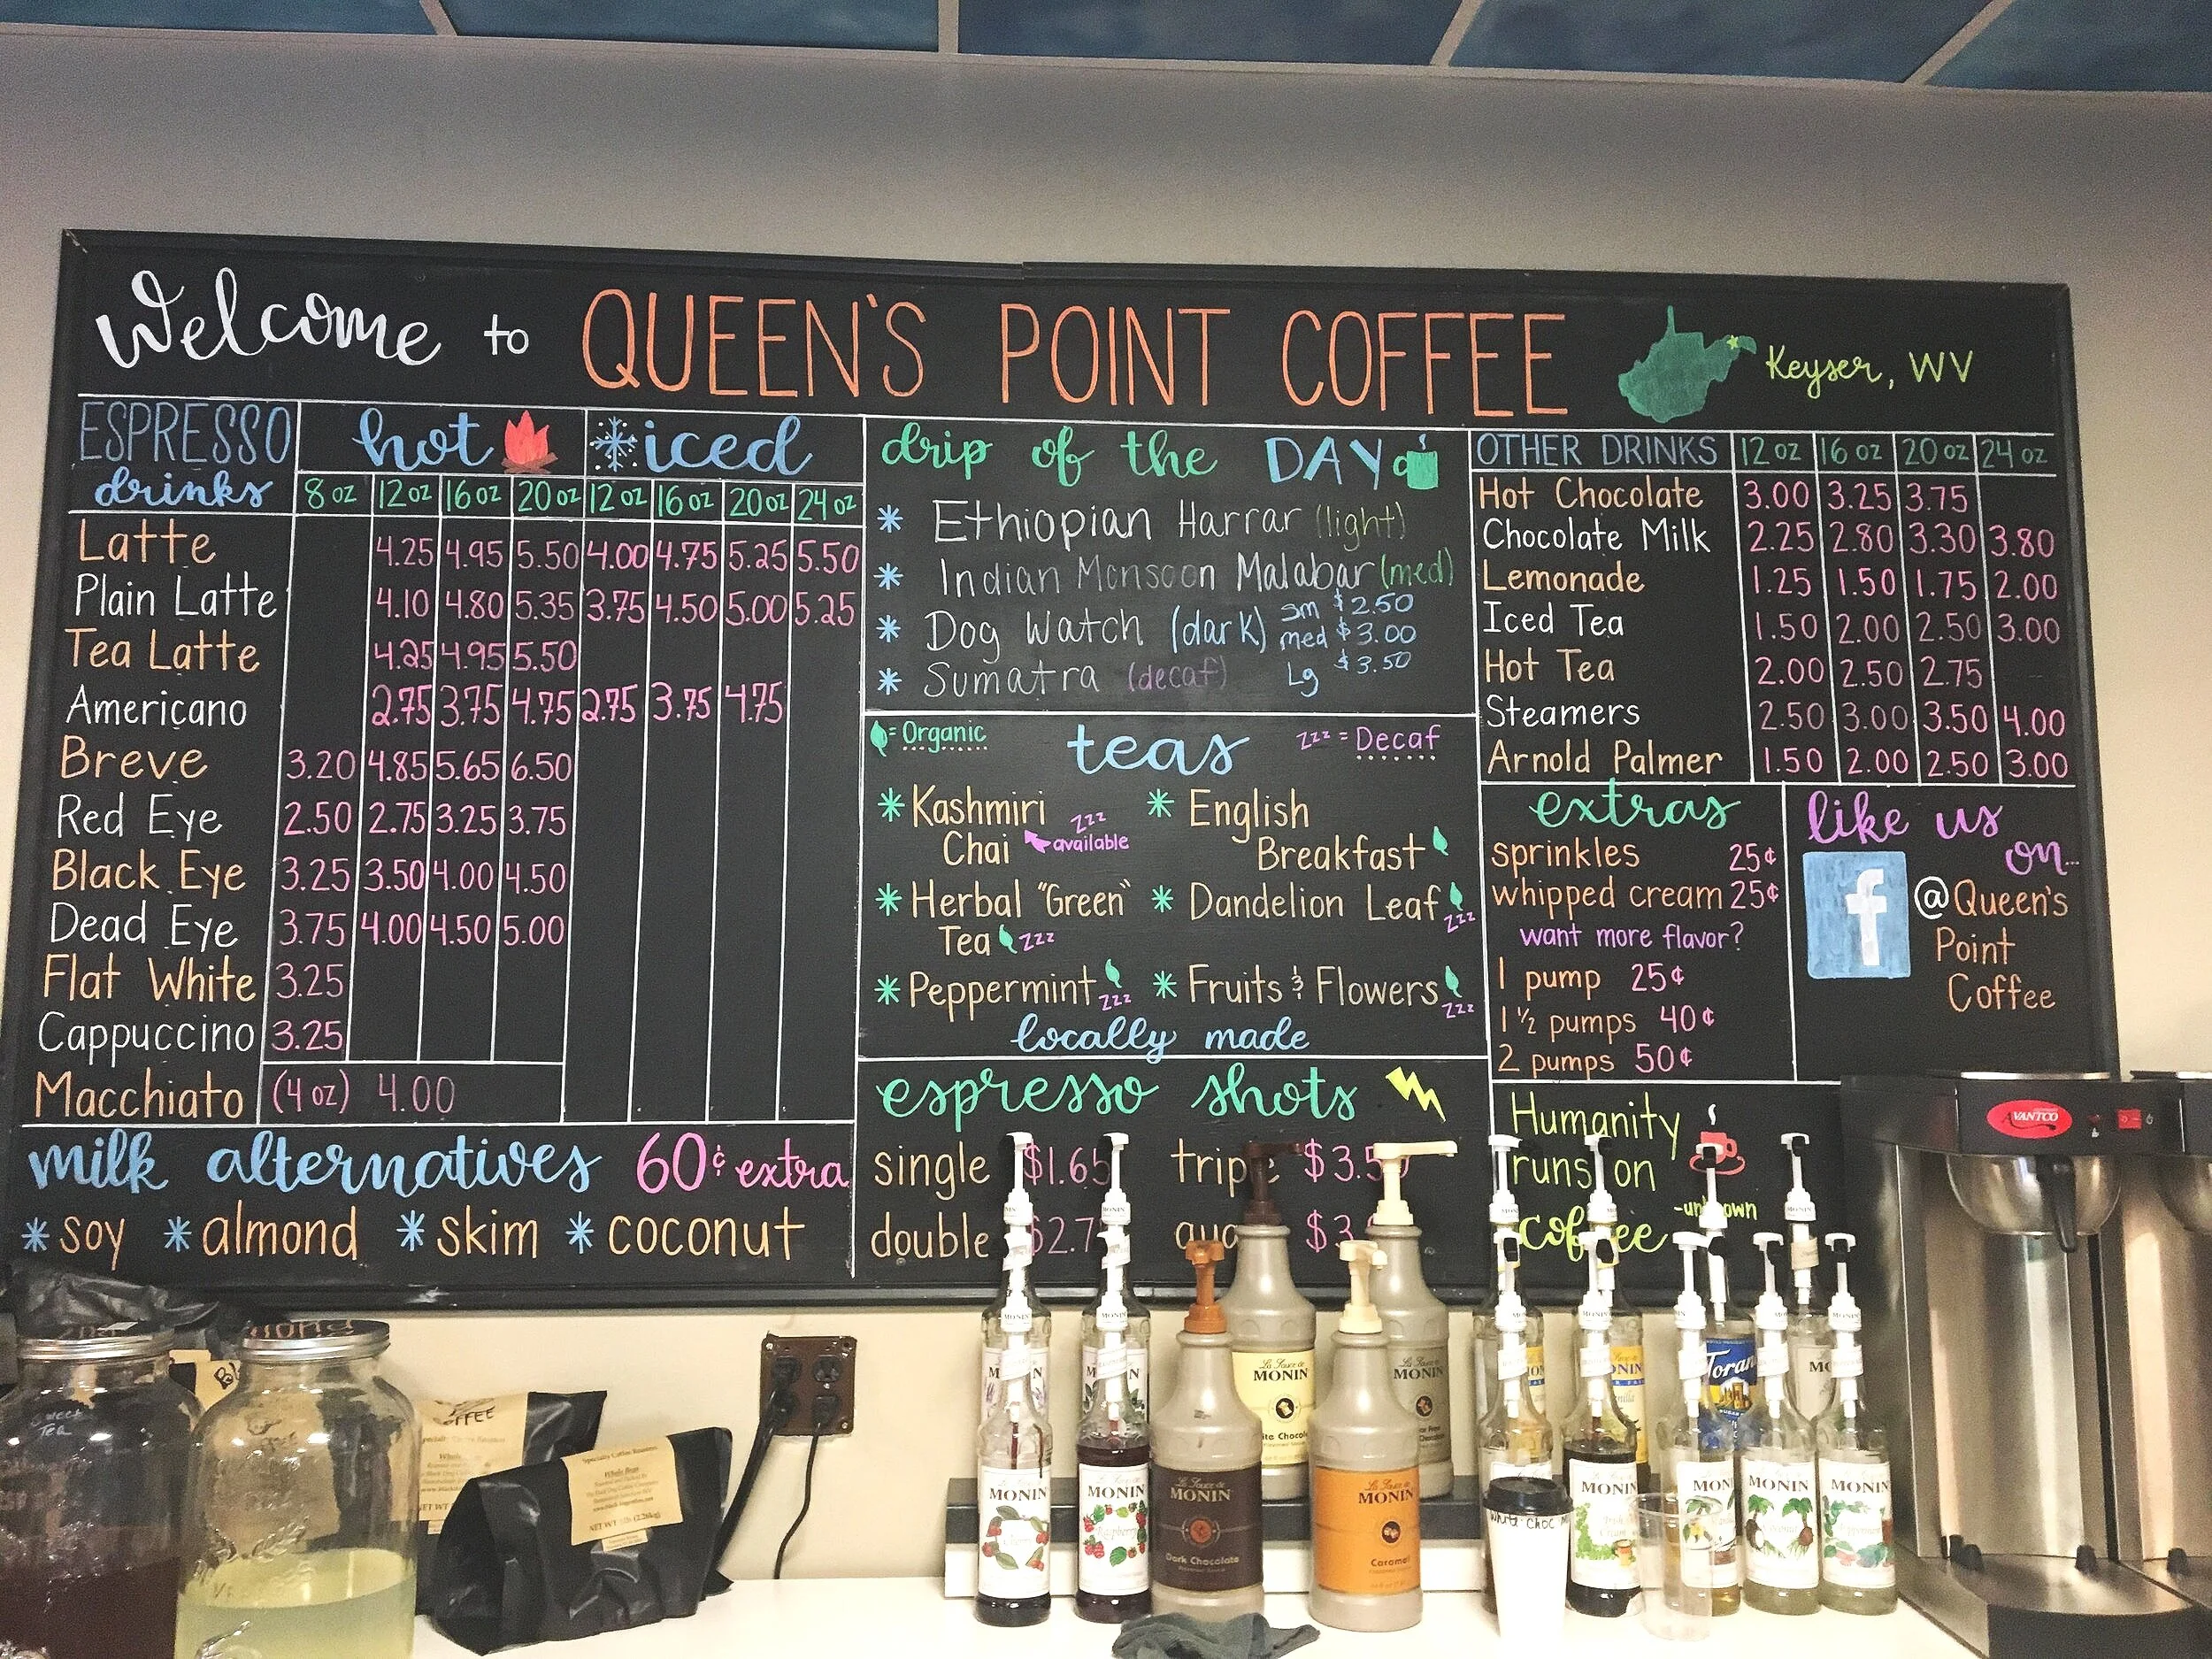 Welcome to QUEEN'S POINT COFFEE Keyser, WV
ESPRESSO drinks
hot iced
8 oz 12 oz 16 oz 20 oz 12 oz 16 oz 20 oz 24 oz
Latte 4.25 4.95 5.50 4.00 4.75 5.25 5.50
Plain Latte 4.10 4.80 5.35 3.75 4.50 5.00 5.25
Tea Latte 4.25 4.95 5.50
Americano 2.75 3.75 4.75 2.75 3.75 4.75
Breve 3.20 4.85 5.65 6.50
Red Eye 2.50 2.75 3.25 3.75
Black Eye 3.25 3.50 4.00 4.50
Dead Eye 3.75 4.00 4.50 5.00
Flat White 3.25
Cappuccino 3.25
Macchiato (4 oz) 4.00
milk alternatives 60¢ extra
* soy * almond * skim * coconut
drip of the DAY
* Ethiopian Harrar (light)
* Indian Monsoon Malabar (med)
* Dog Watch (dark)
* Sumatra (decaf)
sm $2.50
med $3.00
Lg $3.50
= Organic
teas
zzz = Decaf
* Kashmiri Chai zzz available
* English Breakfast
* Herbal "Green" Tea zzz
* Dandelion Leaf zzz
* Peppermint zzz
* Fruits & Flowers zzz
locally made
espresso shots
single $1.65
double $2.7
OTHER DRINKS 12 oz 16 oz 20 oz 24 oz
Hot Chocolate 3.00 3.25 3.75
Chocolate Milk 2.25 2.80 3.30 3.80
Lemonade 1.25 1.50 1.75 2.00
Iced Tea 1.50 2.00 2.50 3.00
Hot Tea 2.00 2.50 2.75
Steamers 2.50 3.00 3.50 4.00
Arnold Palmer 1.50 2.00 2.50 3.00
extras
sprinkles 25¢
whipped cream 25¢
want more flavor?
1 pump 25¢
1 ½ pumps 40¢
2 pumps 50¢
like us on...
f
@Queen's
Point
Coffee
Humanity
runs on
coffee
VANTCO
Sweet
Tea
Specialty Coffee Roasters
Whole Bean
MONIN
MONIN
La Sauce de
MONIN
Dark Chocolate
La Sauce de
MONIN
La Sauce de
MONIN
Caramel
La Sauce de
MONIN
Torani
MONIN
MONIN
MONIN
MONIN
White Choc